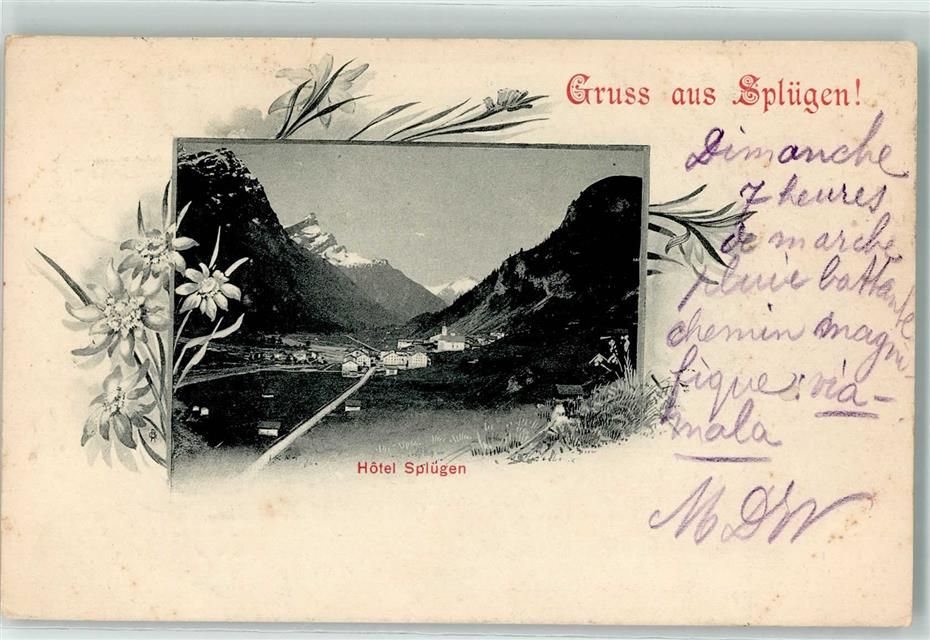 Gruss aus Splügen!
Dimanche
7 heures
de marche
pluie battante
chemin magni-
fique : via-
mala
M DW
Hôtel Splügen